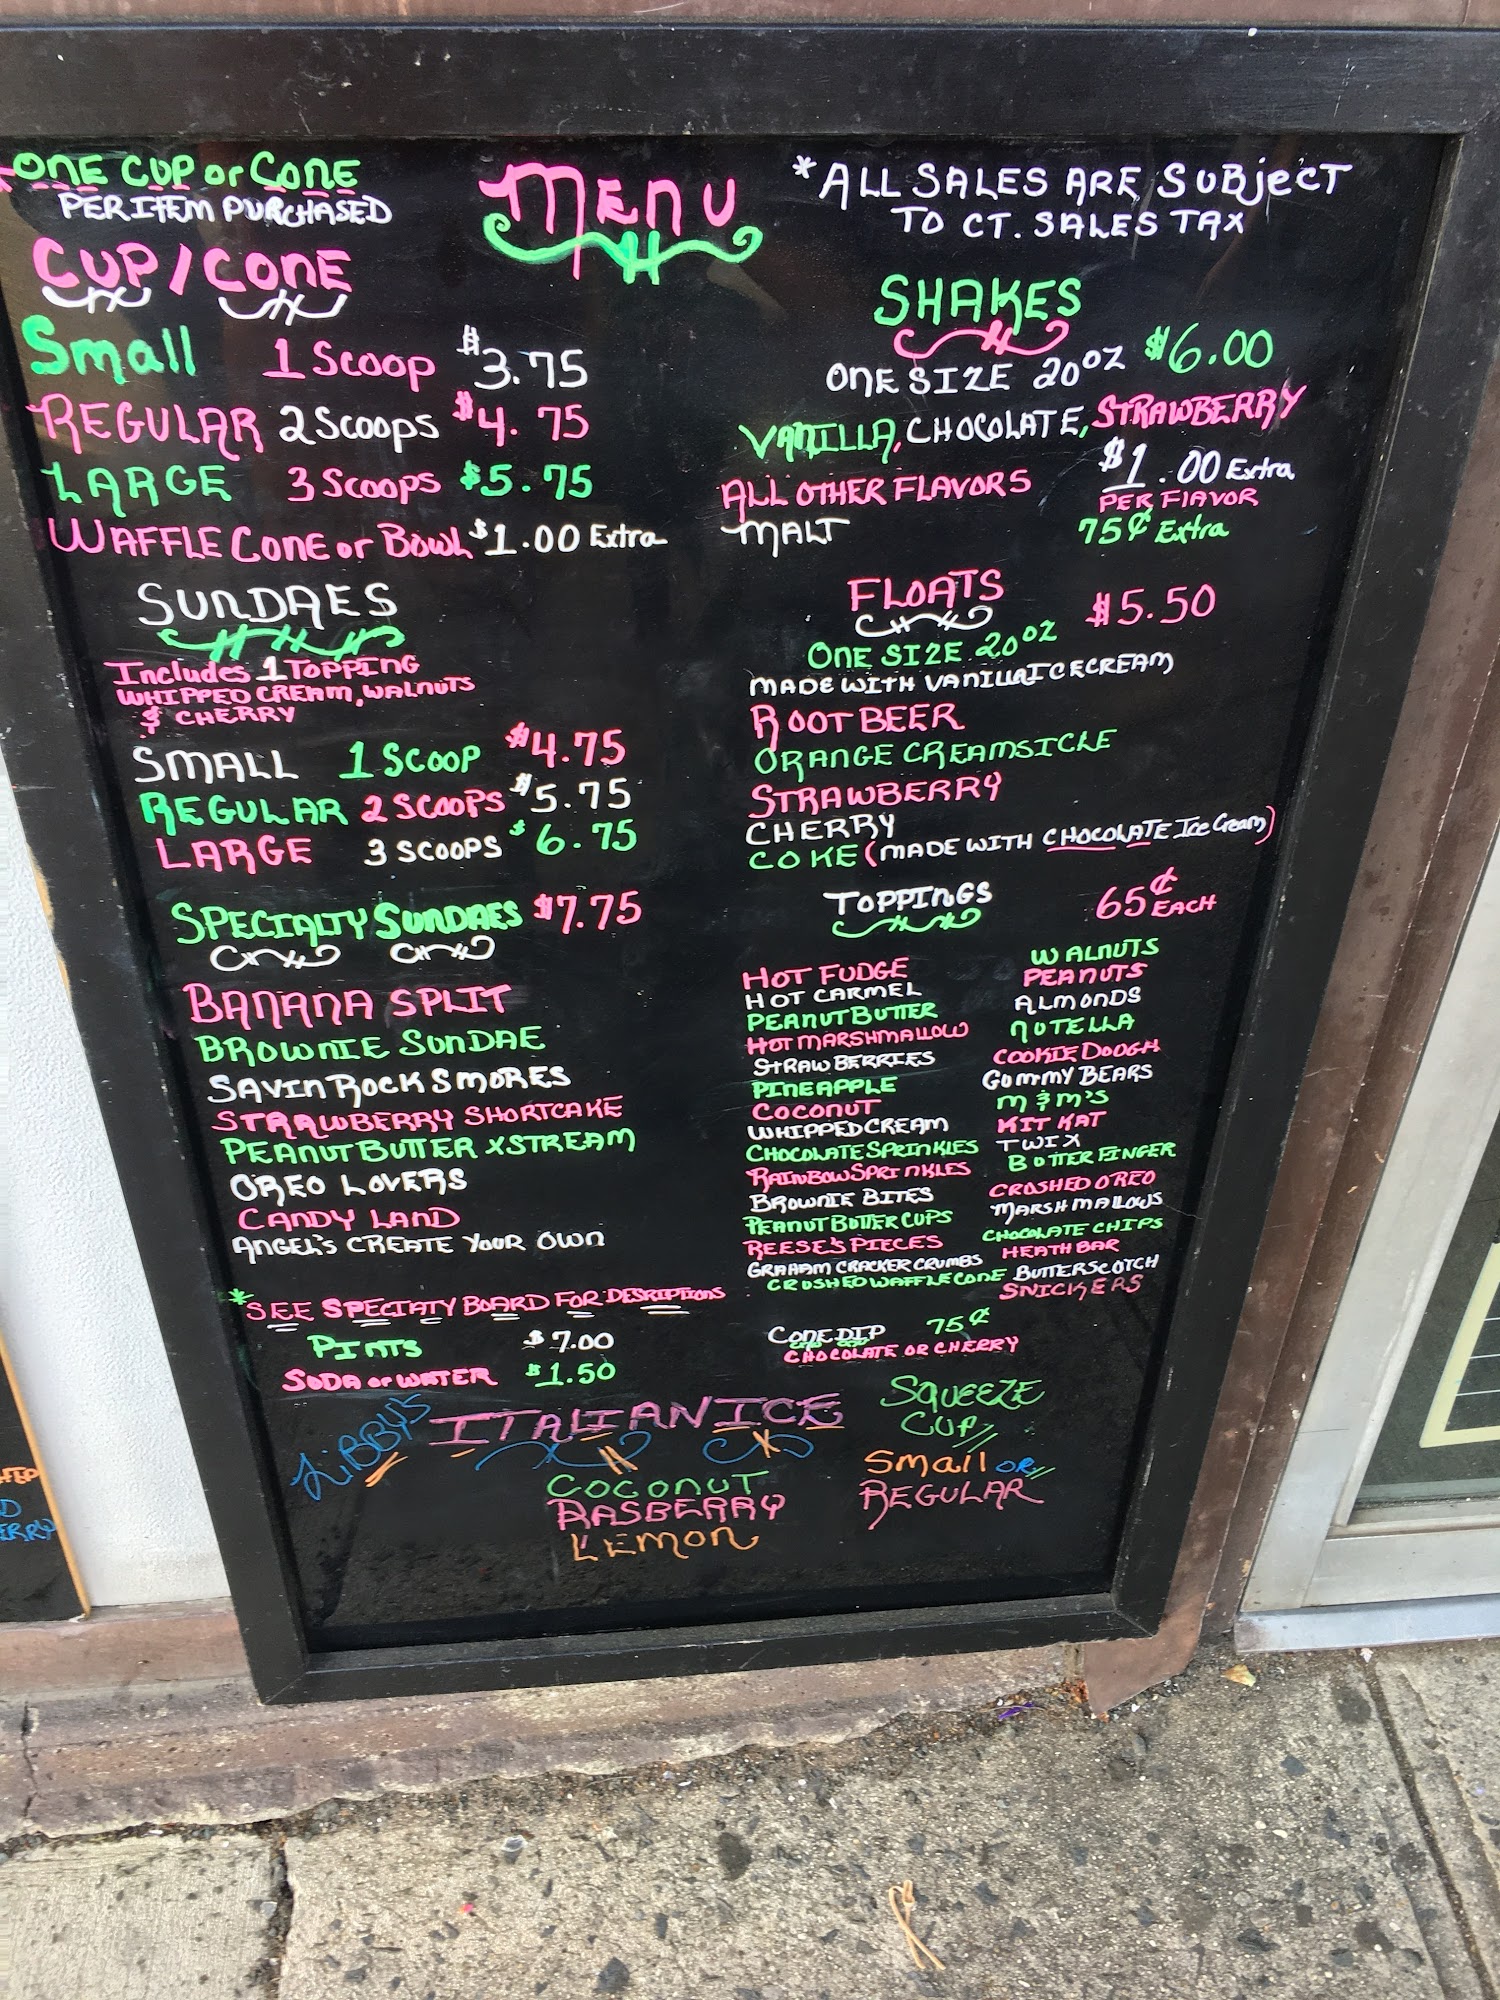 *ONE CUP or CONE
PER ITEM PURCHASED
MENU
*ALL SALES ARE SUBJECT
TO CT. SALES TAX
CUP/CONE
Small 1 Scoop $3.75
REGULAR 2 Scoops $4.75
LARGE 3 Scoops $5.75
WAFFLE CONE or BOWL $1.00 Extra
SUNDAES
Includes 1 TOPPING
WHIPPED CREAM, WALNUTS
& CHERRY
SMALL 1 SCOOP $4.75
REGULAR 2 SCOOPS $5.75
LARGE 3 SCOOPS $6.75
SPECIALTY SUNDAES $7.75
BANANA SPLIT
BROWNIE SUNDAE
SAVIN ROCK SMORES
STRAWBERRY SHORTCAKE
PEANUT BUTTER XSTREAM
OREO LOVERS
CANDY LAND
ANGEL'S CREATE YOUR OWN
*SEE SPECIATY BOARD FOR DESRIPTIONS
PINTS $7.00
SODA or WATER $1.50
SHAKES
ONE SIZE 20oz $6.00
VANILLA, CHOCOLATE, STRAWBERRY
ALL OTHER FLAVORS $1.00 Extra
PER FLAVOR
MALT 75¢ Extra
FLOATS $5.50
ONE SIZE 20oz
MADE WITH VANILLA ICE CREAM
ROOT BEER
ORANGE CREAMSICLE
STRAWBERRY
CHERRY
COKE (MADE WITH CHOCOLATE Ice Cream)
TOPPINGS 65¢ EACH
HOT FUDGE
HOT CARMEL
PEANUT BUTTER
HOT MARSHMALLOW
STRAWBERRIES
PINEAPPLE
COCONUT
WHIPPED CREAM
CHOCOLATE SPRINKLES
RAINBOW SPRINKLES
BROWNIE BITES
PEANUT BUTTER CUPS
REESE'S PIECES
GRAHAM CRACKER CRUMBS
CRUSHED WAFFLE CONE
WALNUTS
PEANUTS
ALMONDS
NUTELLA
COOKIE DOUGH
GUMMY BEARS
M&M'S
KIT KAT
TWIX
BUTTERFINGER
CRUSHED OREO
MARSHMALLOWS
CHOCOLATE CHIPS
HEATH BAR
BUTTERSCOTCH
SNICKERS
CONE DIP 75¢
CHOCOLATE OR CHERRY
LiBBY'S ITALIAN ICE
COCONUT
RASBERRY
LEMON
SQUEEZE
CUP
Small OR
REGULAR